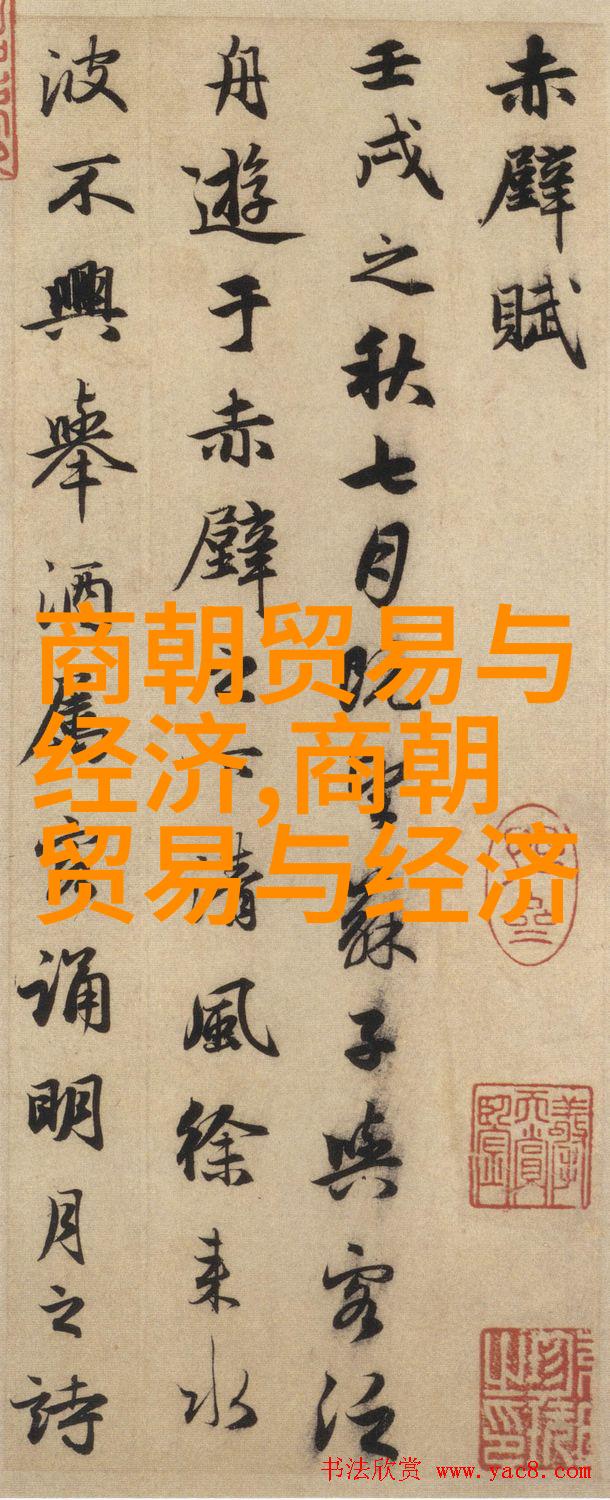 赤壁賦
壬戌之秋七月既望蘇子與客泛
舟遊于赤壁之下清風徐來水
波不興舉酒屬客誦明月之詩
商朝贸易与
经济,商朝
贸易与经济
书法欣赏 www.yac8.com